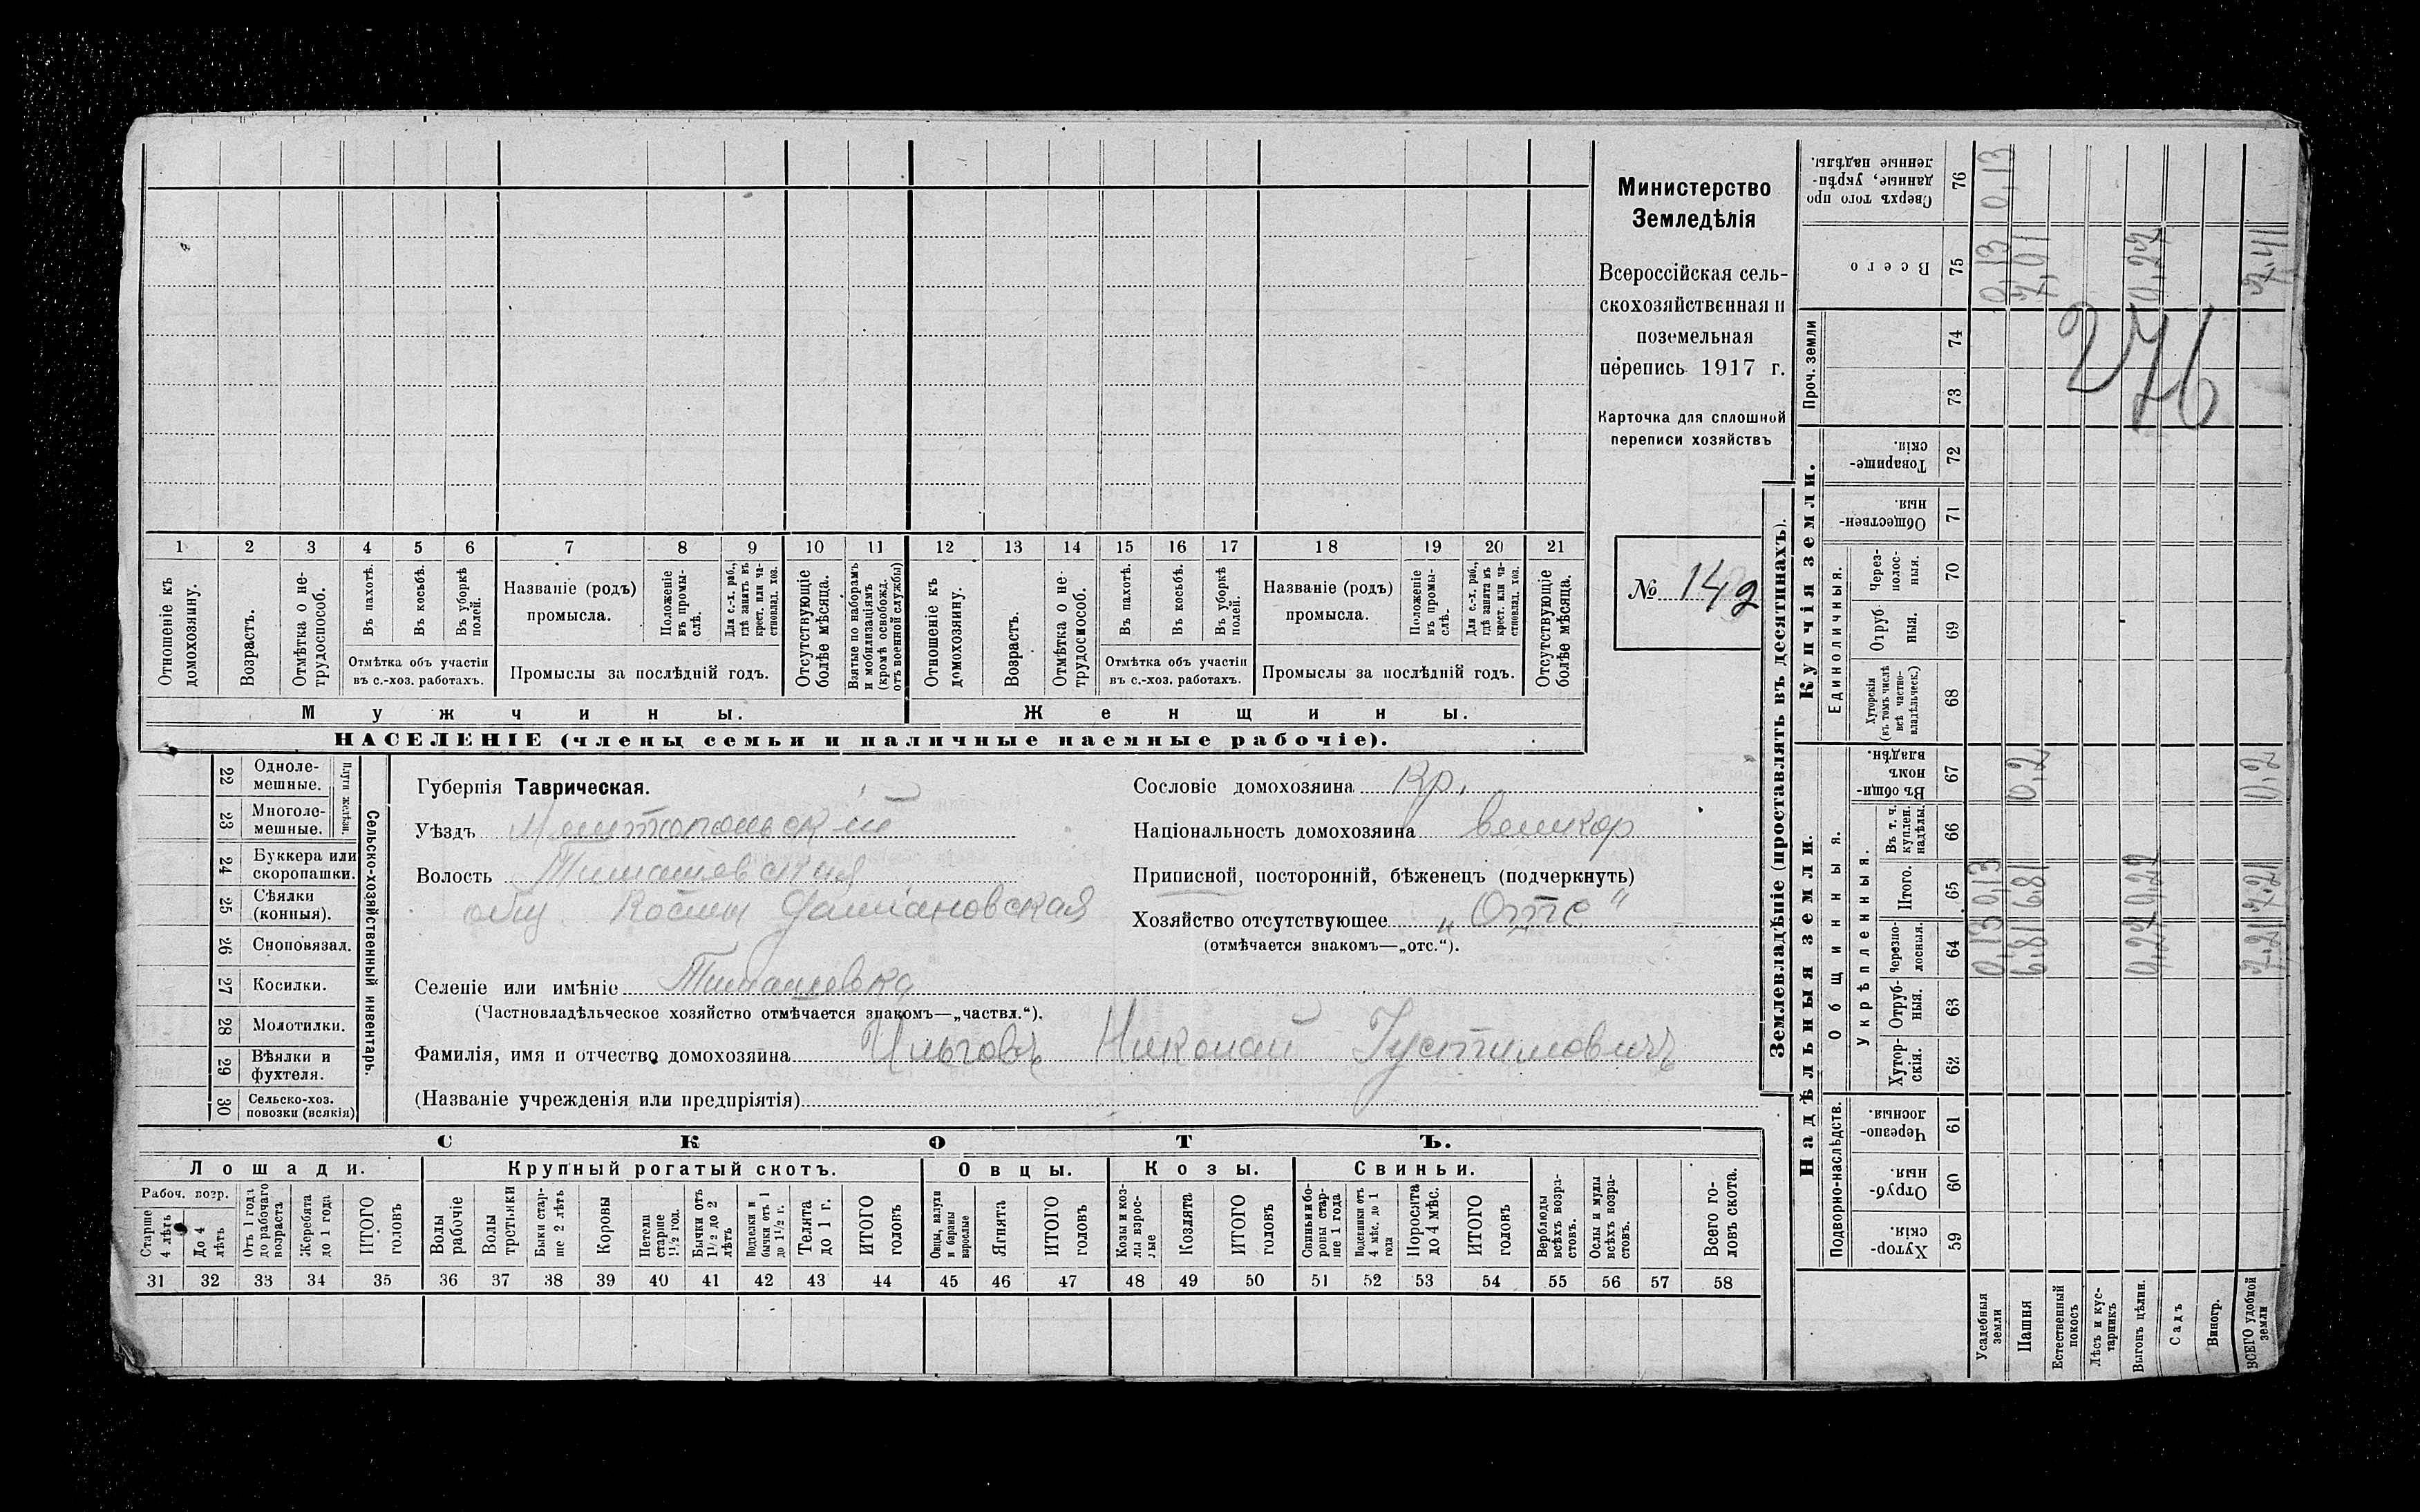 Министерство
Земледѣлія
Всероссійская сель-
скохозяйственная и
поземельная
перепись 1917 г.
Карточка для сплошной
переписи хозяйствъ
№ 142
1 2 3 4 5 6 7 8 9 10 11 12 13 14 15 16 17 18 19 20 21
Отношеніе къ домохозяину.
Возрастъ.
Отмѣтка о не-трудоспособ.
Въ пахотѣ.
Въ косьбѣ.
Въ уборкѣ полей.
Отмѣтка объ участіи
въ с.-хоз. работахъ.
Названіе (родъ)
промысла.
Положеніе въ промы-слѣ.
Для с.-х. раб., гдѣ занятъ въ крест. или ча-стновлад. хоз.
Промыслы за послѣдній годъ.
Отсутствующіе болѣе мѣсяца.
Взятые по наборамъ и мобилизаціямъ (кромѣ освобожд. отъ военной службы)
Отношеніе къ домохозяину.
Возрастъ.
Отмѣтка о не-трудоспособ.
Въ пахотѣ.
Въ косьбѣ.
Въ уборкѣ полей.
Отмѣтка объ участіи
въ с.-хоз. работахъ.
Названіе (родъ)
промысла.
Положеніе въ промы-слѣ.
Для с.-х. раб., гдѣ занята въ крест. или ча-стновлад. хоз.
Промыслы за послѣдній годъ.
Отсутствующіе болѣе мѣсяца.
Мужчины.
Женщины.
НАСЕЛЕНІЕ (члены семьи и наличные наемные рабочіе).
22 Одноле-мешные.
23 Многоле-мешные.
Плуги желѣзн.
24 Буккера или скоропашки.
25 Сѣялки (конныя).
26 Сноповязал.
27 Косилки.
28 Молотилки.
29 Вѣялки и фухтеля.
30 Сельско-хоз. повозки (всякія)
Сельско-хозяйственный инвентарь.
Губернія Таврическая.
Уѣздъ Мелитопольскій
Волость Тимашевская
общ. Косьмы Даміановская
Селеніе или имѣніе Тимашевка
(Частновладѣльческое хозяйство отмѣчается знакомъ—„частвл.“).
Фамилія, имя и отчество домохозяина Николай Іустимовичъ
(Названіе учрежденія или предпріятія)
Сословіе домохозяина Кр.
Національность домохозяина великор
Приписной, посторонній, бѣженецъ (подчеркнуть)
Хозяйство отсутствующее „Отс“
(отмѣчается знакомъ—„отс.“).
СКОТЪ.
Лошади. Крупный рогатый скотъ. Овцы. Козы. Свиньи.
Рабоч. возр.
Старше 4 лѣтъ
До 4 лѣтъ
Отъ 1 года до рабочаго возраста
Жеребята до 1 года
ИТОГО головъ
Волы рабочіе
Волы третьяки
Быки стар-ше 2 лѣтъ
Коровы
Нетели старше 1½ год.
Бычки отъ 1½ до 2 лѣтъ
Подтелки и бычки отъ 1 до 1½ г.
Телята до 1 г.
ИТОГО головъ
Овцы, валухи и бараны взрослые
Ягнята
ИТОГО головъ
Козы и коз-лы взрос-лые
Козлята
ИТОГО головъ
Свиньи и бо-ровы стар-ше 1 года
Подсвинки отъ 4 мѣс. до 1 года
Поросята до 4 мѣс.
ИТОГО головъ
Верблюды всѣхъ возра-стовъ.
Ослы и мулы всѣхъ возра-стовъ.
Всего го-ловъ скота.
31 32 33 34 35 36 37 38 39 40 41 42 43 44 45 46 47 48 49 50 51 52 53 54 55 56 57 58
Землевладѣніе (проставлять въ десятинахъ).
Надѣльныя земли.
Купчія земли.
Проч. земли
Подворно-наслѣдств.
Общинныя.
Укрѣпленныя.
Единоличныя.
Сверхъ того про-данные, укрѣп-ленные надѣлы. 76 0,13
Всего 75 0,13 7,01 0,22 7,41
74
73
276
Товарище-скія. 72
Обществен-ныя. 71
Через-полос-ныя. 70
Отруб-ныя. 69
Хуторскія (въ томъ числѣ всѣ частно-владѣльческ.) 68
Въ общи-номъ владѣн. 67 0,2 0,2
Въ т. ч. куплен. надѣлы. 66
Итого. 65 0,13 6,81 0,22 7,21
Черезпо-лосныя. 64 0,13 6,81 0,22 7,21
Отруб-ныя. 63
Хутор-скія. 62
Черезпо-лосныя. 61
Отруб-ныя. 60
Хутор-скія. 59
Усадебныя земли
Пашня
Естественный покосъ
Лѣсъ и кус-тарникъ
Выгонъ цѣлин.
Садъ
Виногр.
ВСЕГО удобной земли